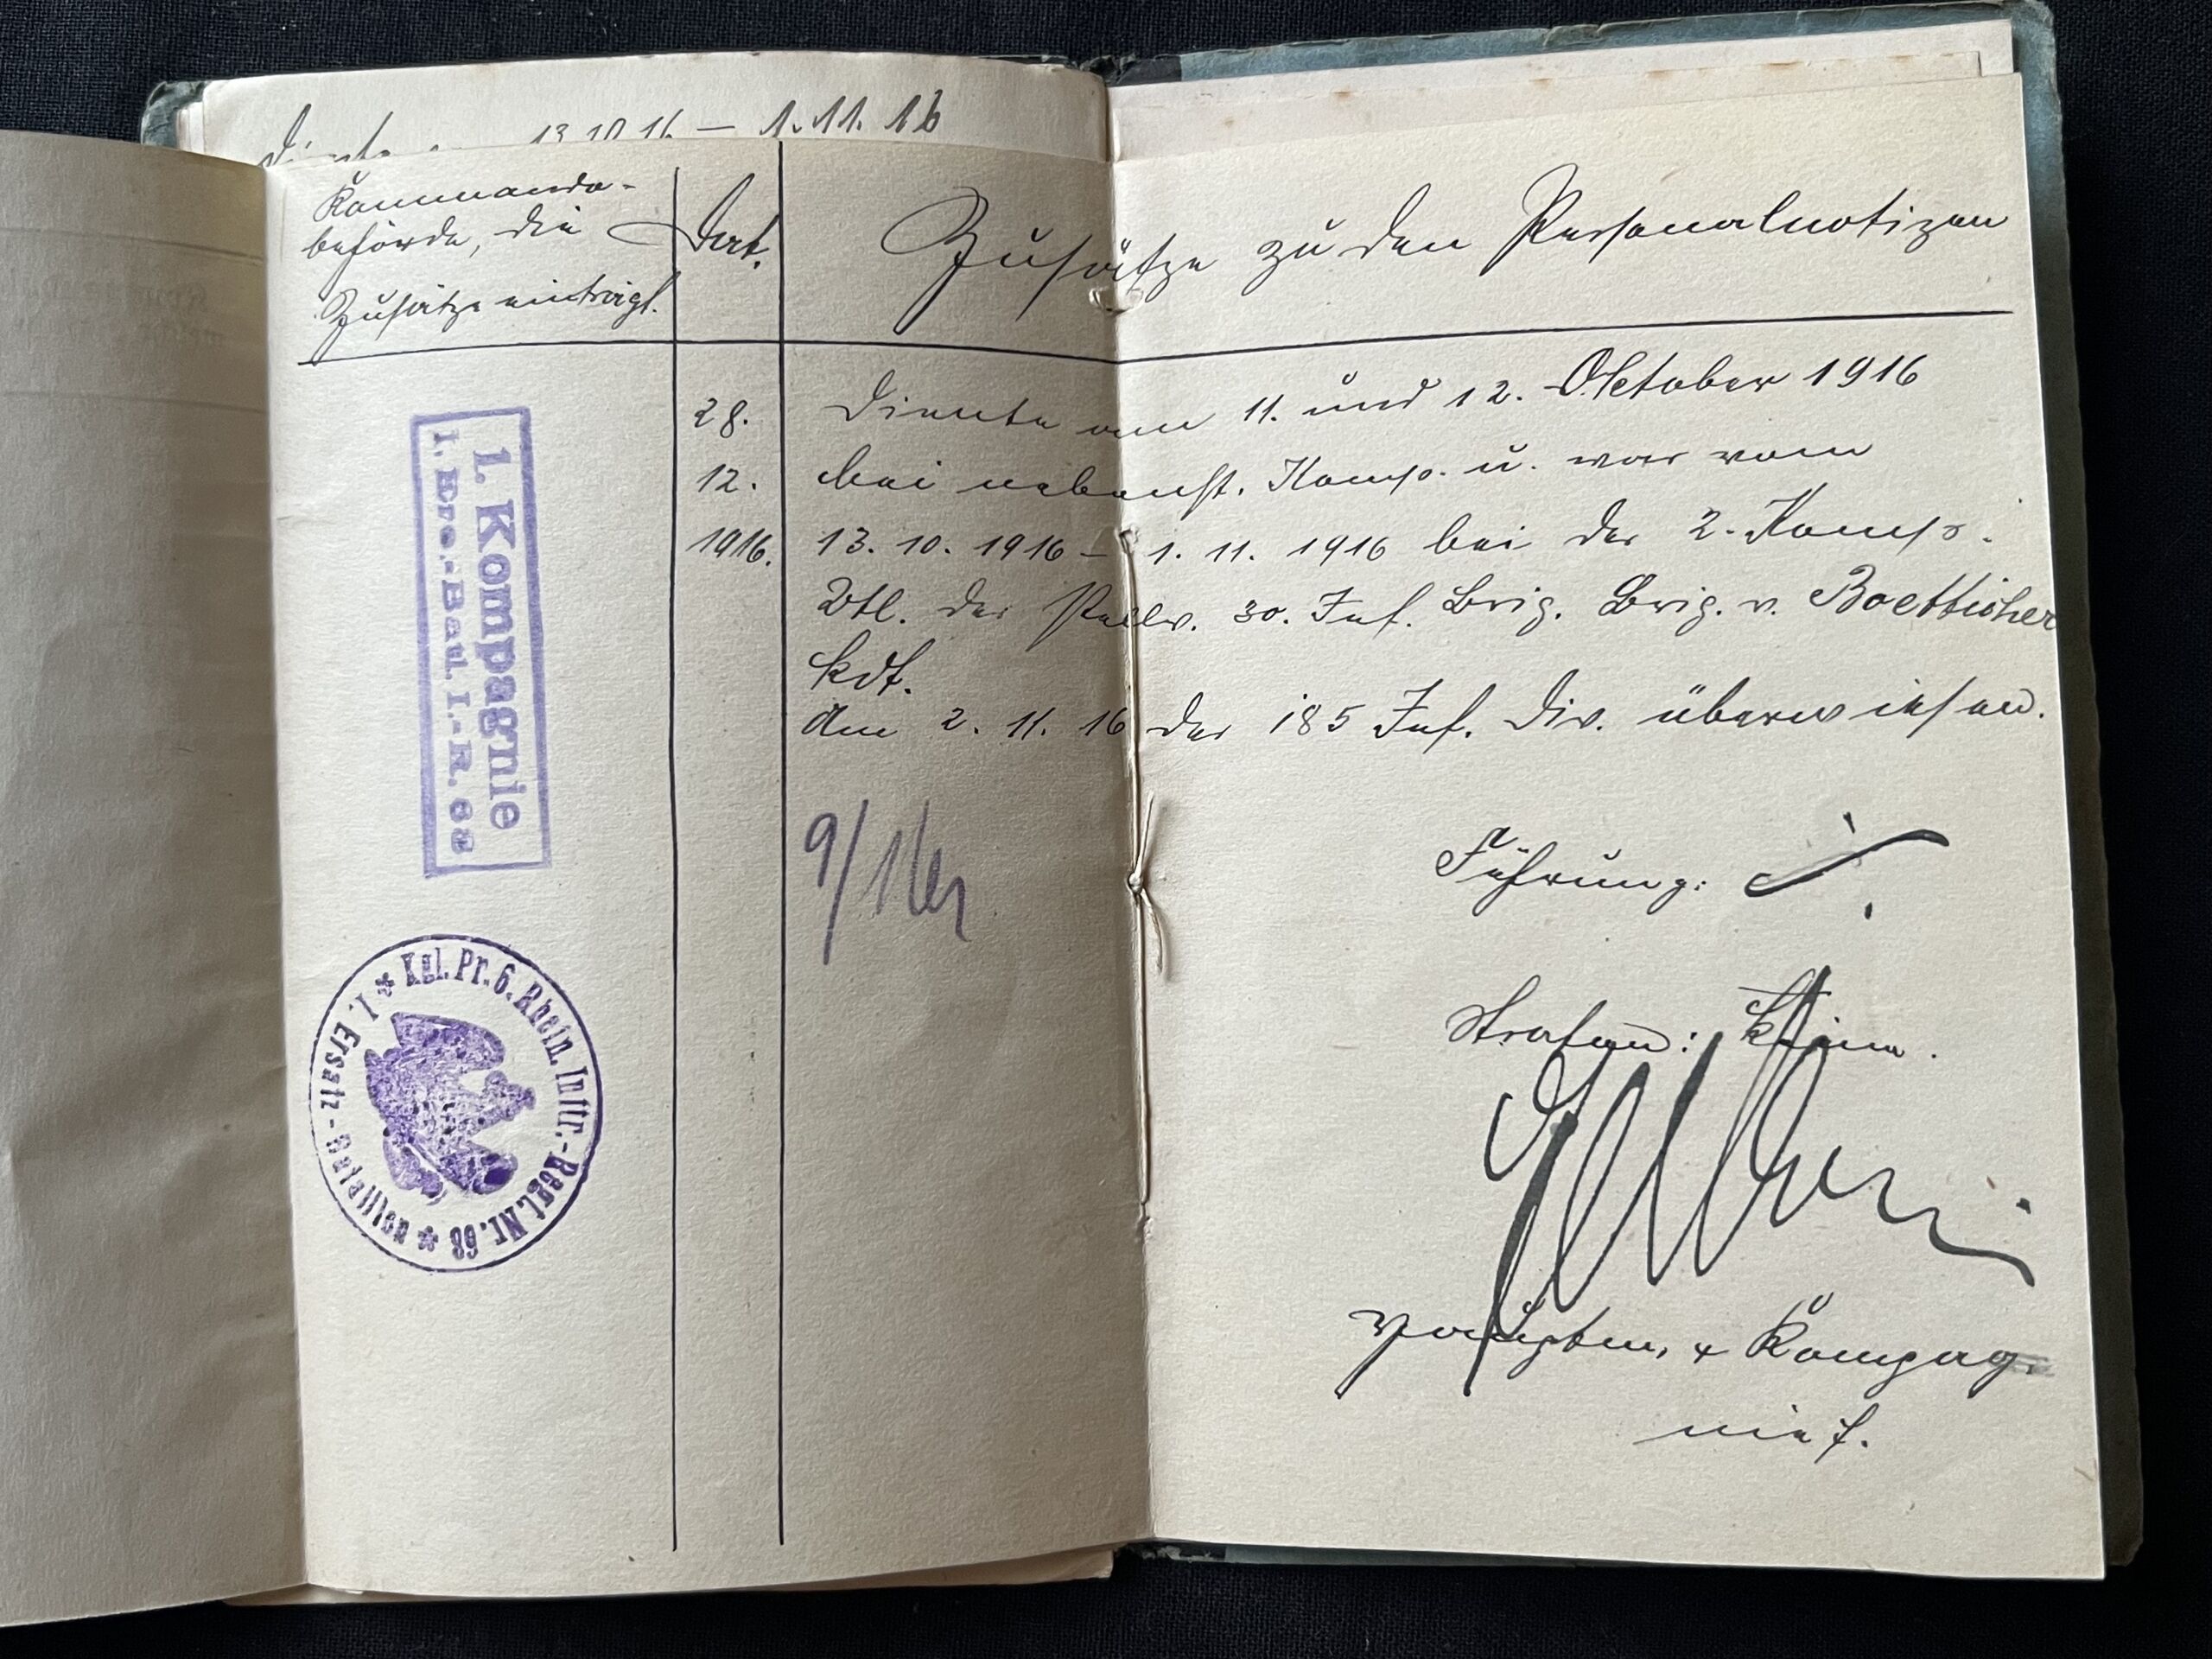 13.10.16 — 1.11.16
Kommando-
behörde, die
Zusätze einträgt.
Dat.
Zusätze zu den Personalnotizen
1. Kompagnie
1. Ers.-Batl. I.-R. 68
28.
12.
1916.
Diente am 11. und 12. Oktober 1916
bei nebenst. Komp. u. war vom
13. 10. 1916 – 1. 11. 1916 bei der 2. Komp.
Btl. der 30. Inf. Brig. Brig. v. Boetticher
kdt.
Am 2. 11. 16 der 185 Inf. Div. überwiesen.
Führung:
Strafen: Keine.
* Kgl. Pr. 6. Rhein. Inftr.-Regt. Nr. 68 * I. Ersatz-Bataillon
u. Kompag.
nief.